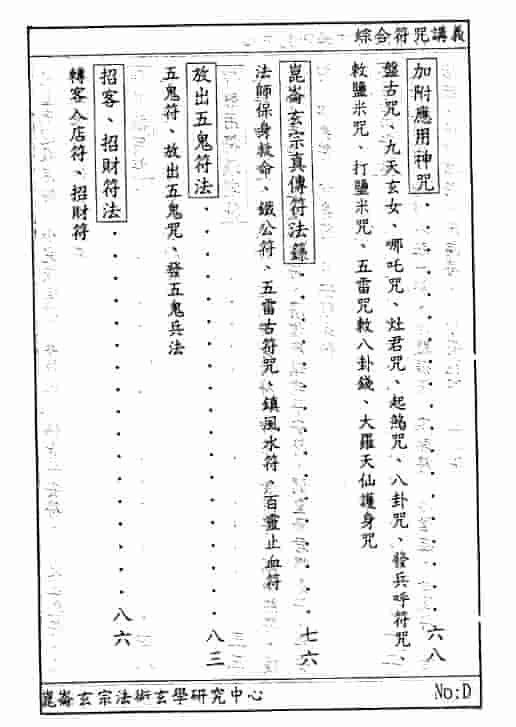 綜合符咒講義
加附應用神咒・・・・・・・・・・・・・・・・・・・・六八
盤古咒、九天玄女、哪吒咒、灶君咒、起煞咒、八卦咒、發兵呼符咒、
敕鹽米咒、打鹽米咒、五雷咒敕八卦錢、大羅天仙護身咒
崑崙玄宗真傳符法錄・・・・・・・・・・・・・・・・七六
法師保身救命、鐵公符、五雷古符咒、鎮風水符、百靈止血符
放出五鬼符法・・・・・・・・・・・・・・・・・・・・八三
五鬼符、放出五鬼咒、發五鬼兵法
招客、招財符法・・・・・・・・・・・・・・・・・・・八六
轉客入店符、招財符
崑崙玄宗法術玄學研究中心
No:D